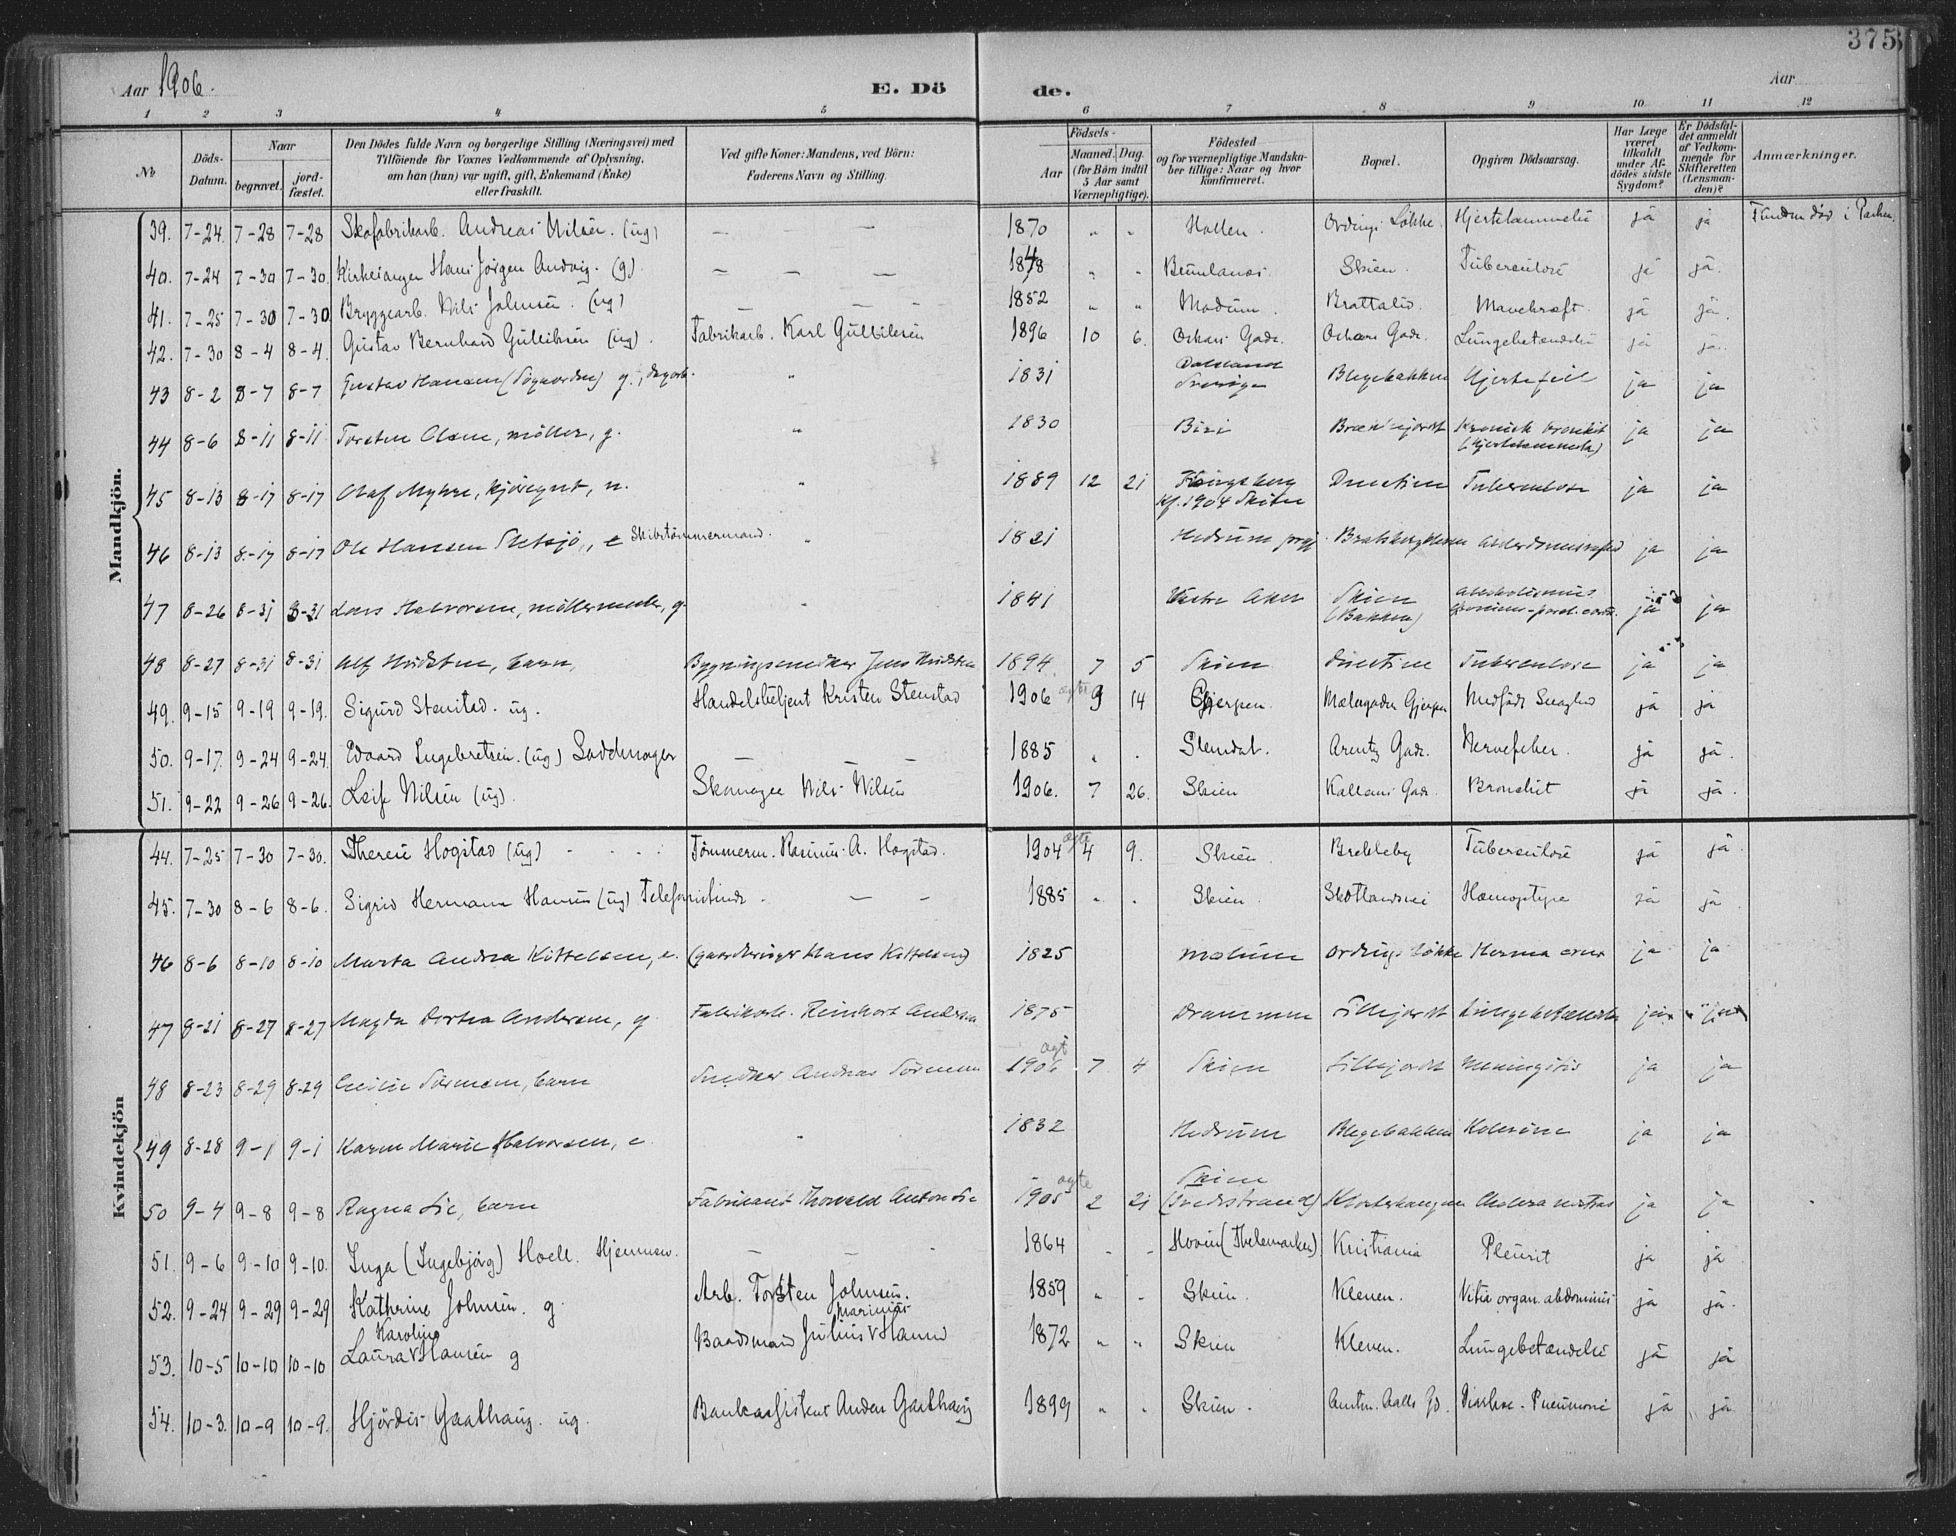 375
Aar 1906.
E. Dö de.
Aar
1 2 3 4 5 6 7 8 9 10 11 12
No
Döds-Datum.
Naar
begravet.
jord-fæstet.
Den Dödes fulde Navn og borgerlige Stilling (Næringsvei) med
Tilföiende for Voxnes Vedkommende af Oplysning,
om han (hun) var ugift, gift, Enkemand (Enke)
eller fraskilt.
Ved gifte Koner: Mandens, ved Börn:
Faderens Navn og Stilling.
Födsels-
Aar
Maaned. Dag.
(for Börn indtil
5 Aar samt
Værnepligtige).
Födested
og for værnepligtige Mandska-
ber tillige: Naar og hvor
konfirmeret.
Bopæl.
Opgiven Dödsaarsag.
Har Læge
været
tilkaldt
under Af-
dödes sidste
Sygdom?
Er Dödsfal-
det anmeldt
af Vedkom-
mende for
Skifteretten
(Lensman-
den)?
Anmærkninger.
Mandkjön.
39. 7-24. 7-28 7-28 Skofabrikarb. Andreas Nilsen. (ug) — — — 1870 " " Hollen. Ordings Løkke. Hjertelammelse ja ja Funden død i Parken.
40. 7-24 7-30 7-30. Kirkesanger Hans Jørgen Andvig. (g). — — — 1848 " " Brunlanæs. Skien. Tuberculose ja ja.
41. 7-25 7-30 7-30 Bryggearb. Nils Johnsen. (ug) — — — 1852 " " Modum. Brattalid. Mavekræft. ja ja.
42. 7-30 8-4 8-4. Gustav Bernhard Gulliksen (ug). Fabrikarb. Karl Gulliksen 1896 10 6. Oskars Gade. Oskars Gade. Lungebetændelse ja ja.
43 8-2 8-7 8-7 Gustav Hansen g., dagarb. " 1831 Dalsland Sverige Blegebakken Hjertefeil ja ja
44 8-6 8-11 8-11 Torsten Olsen, møller, g. " 1830 Biri Kronisk bronkit (Hjertelammelse) ja ja
45 8-13 8-17 8-17 Olaf Myhre, kjøregut, u. " 1889 12 21 Kongsberg Kf. 1904 Skien Tuberculose ja ja
46 8-13 8-17 8-17 Ole Hansen, e Skibstømmermand. " 1821 Hedrum Alderdomssvaghed ja ja
47 8-26 8-31 8-31 Lars Halvorsen, møllermester, g. " 1841 Vestre Aker Skien (Bakken) Alcoholismus ja ja
48 8-27 8-31 8-31 Alf barn, Bygningssnedker Jens 1894 7 5 Skien Tuberculose ja ja
49. 9-15 9-19 9-19. Sigurd Stenstad. ug. Handelsbetjent Kristen Stenstad 1906 ægte 9 14 Gjerpen. Gjerpen Medfødt Svaghed ja ja
50. 9-17. 9-24 9-24. Edvard Ingebretsen. (ug) Sadelmager — — — 1885 " . Slemdal. Arentz Gade. Nervefeber. ja ja.
51. 9-22 9-26 9-26. Leif Nilsen (ug). Skomager Nils Nilsen 1906. 7 26. Skien Bronchit ja ja.
Kvindekjön
44. 7-25 7-30 7-30. Therese Hogstad (ug) Tømmerm. Rasmus A. Hogstad. 1904 ægte 4 9. Skien. Brekkeby Tuberculose ja ja
45. 7-30 8-6 8-6. Sigrid Hermana Hansen (ug) Telefonistinde. — — 1885 " . Skien. Skotlandsvei Hæmoptyse ja ja
46 8-6 8-10 8-10 Marta Andrea Kittelsen, e. (gaardbruger Hans Kittelsen) 1825 Ordings Løkke ja ja
47 8-21 8-27 8-27 Magda Dortea Andersen, g Fabrikarb. Reinhart Andersen 1875 Drammen Lillejordet Lungebetændelse ja ja
48 8-23 8-29 8-29 Sørensen, barn Snedker Andreas Sørensen 1906 ægt 7 4 Skien Lillejordet Meningitis ja ja
49 8-28 9-1 9-1 Karen Marie Halvorsen, e " 1832 Hedrum Blegebakken Kolerine ja ja
50 9-4 9-8 9-8 Ragna Lie, barn Fabrikant Thorvald Anton Lie 1905 ægte 2 21 Skien Klosterhaugen Cholera nostras ja ja
51. 9-6 9-10 9-10. Inga (Ingebjørg) Hoell. Hjemmev. — — " 1864 " " Hovin (Thelemarken) Kristiania Pleurit ja ja
52. 9-24 9-29 9-29 Kathrine Johnsen. g. Arb. Torsten Johnsen. 1859 " " Skien. Kleven. Vitia organ. abdominis ja ja.
53. 10-5 10-10 10-10 Laura Karoline Hansen g Baadsmand Julius Marinius Hansen 1872 " " Skien Kleven. Lungebetændelse ja ja
54. 10-3. 10-9 10-9. Hjørdis Gaathaug. ug. Bankassistent Anders Gaathaug 1899 " " Skien. Amtm. Aalls G. Pneumoni ja ja